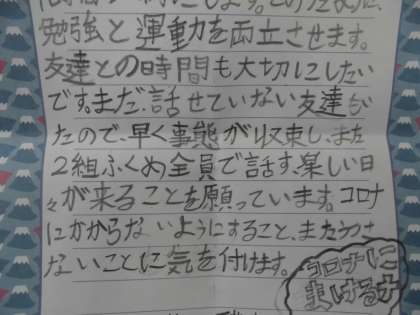 勉強と運動を両立させます。
友達との時間も大切にしたい
です。まだ、話せていない友達が
たので、早く事態が収束し、また
2組ふくめ全員で話す、楽しい日
々が来ることを願っています。コロナ
にかからないようにすること、またうつさ
ないことに気を付けます。
コロナに
負けるな